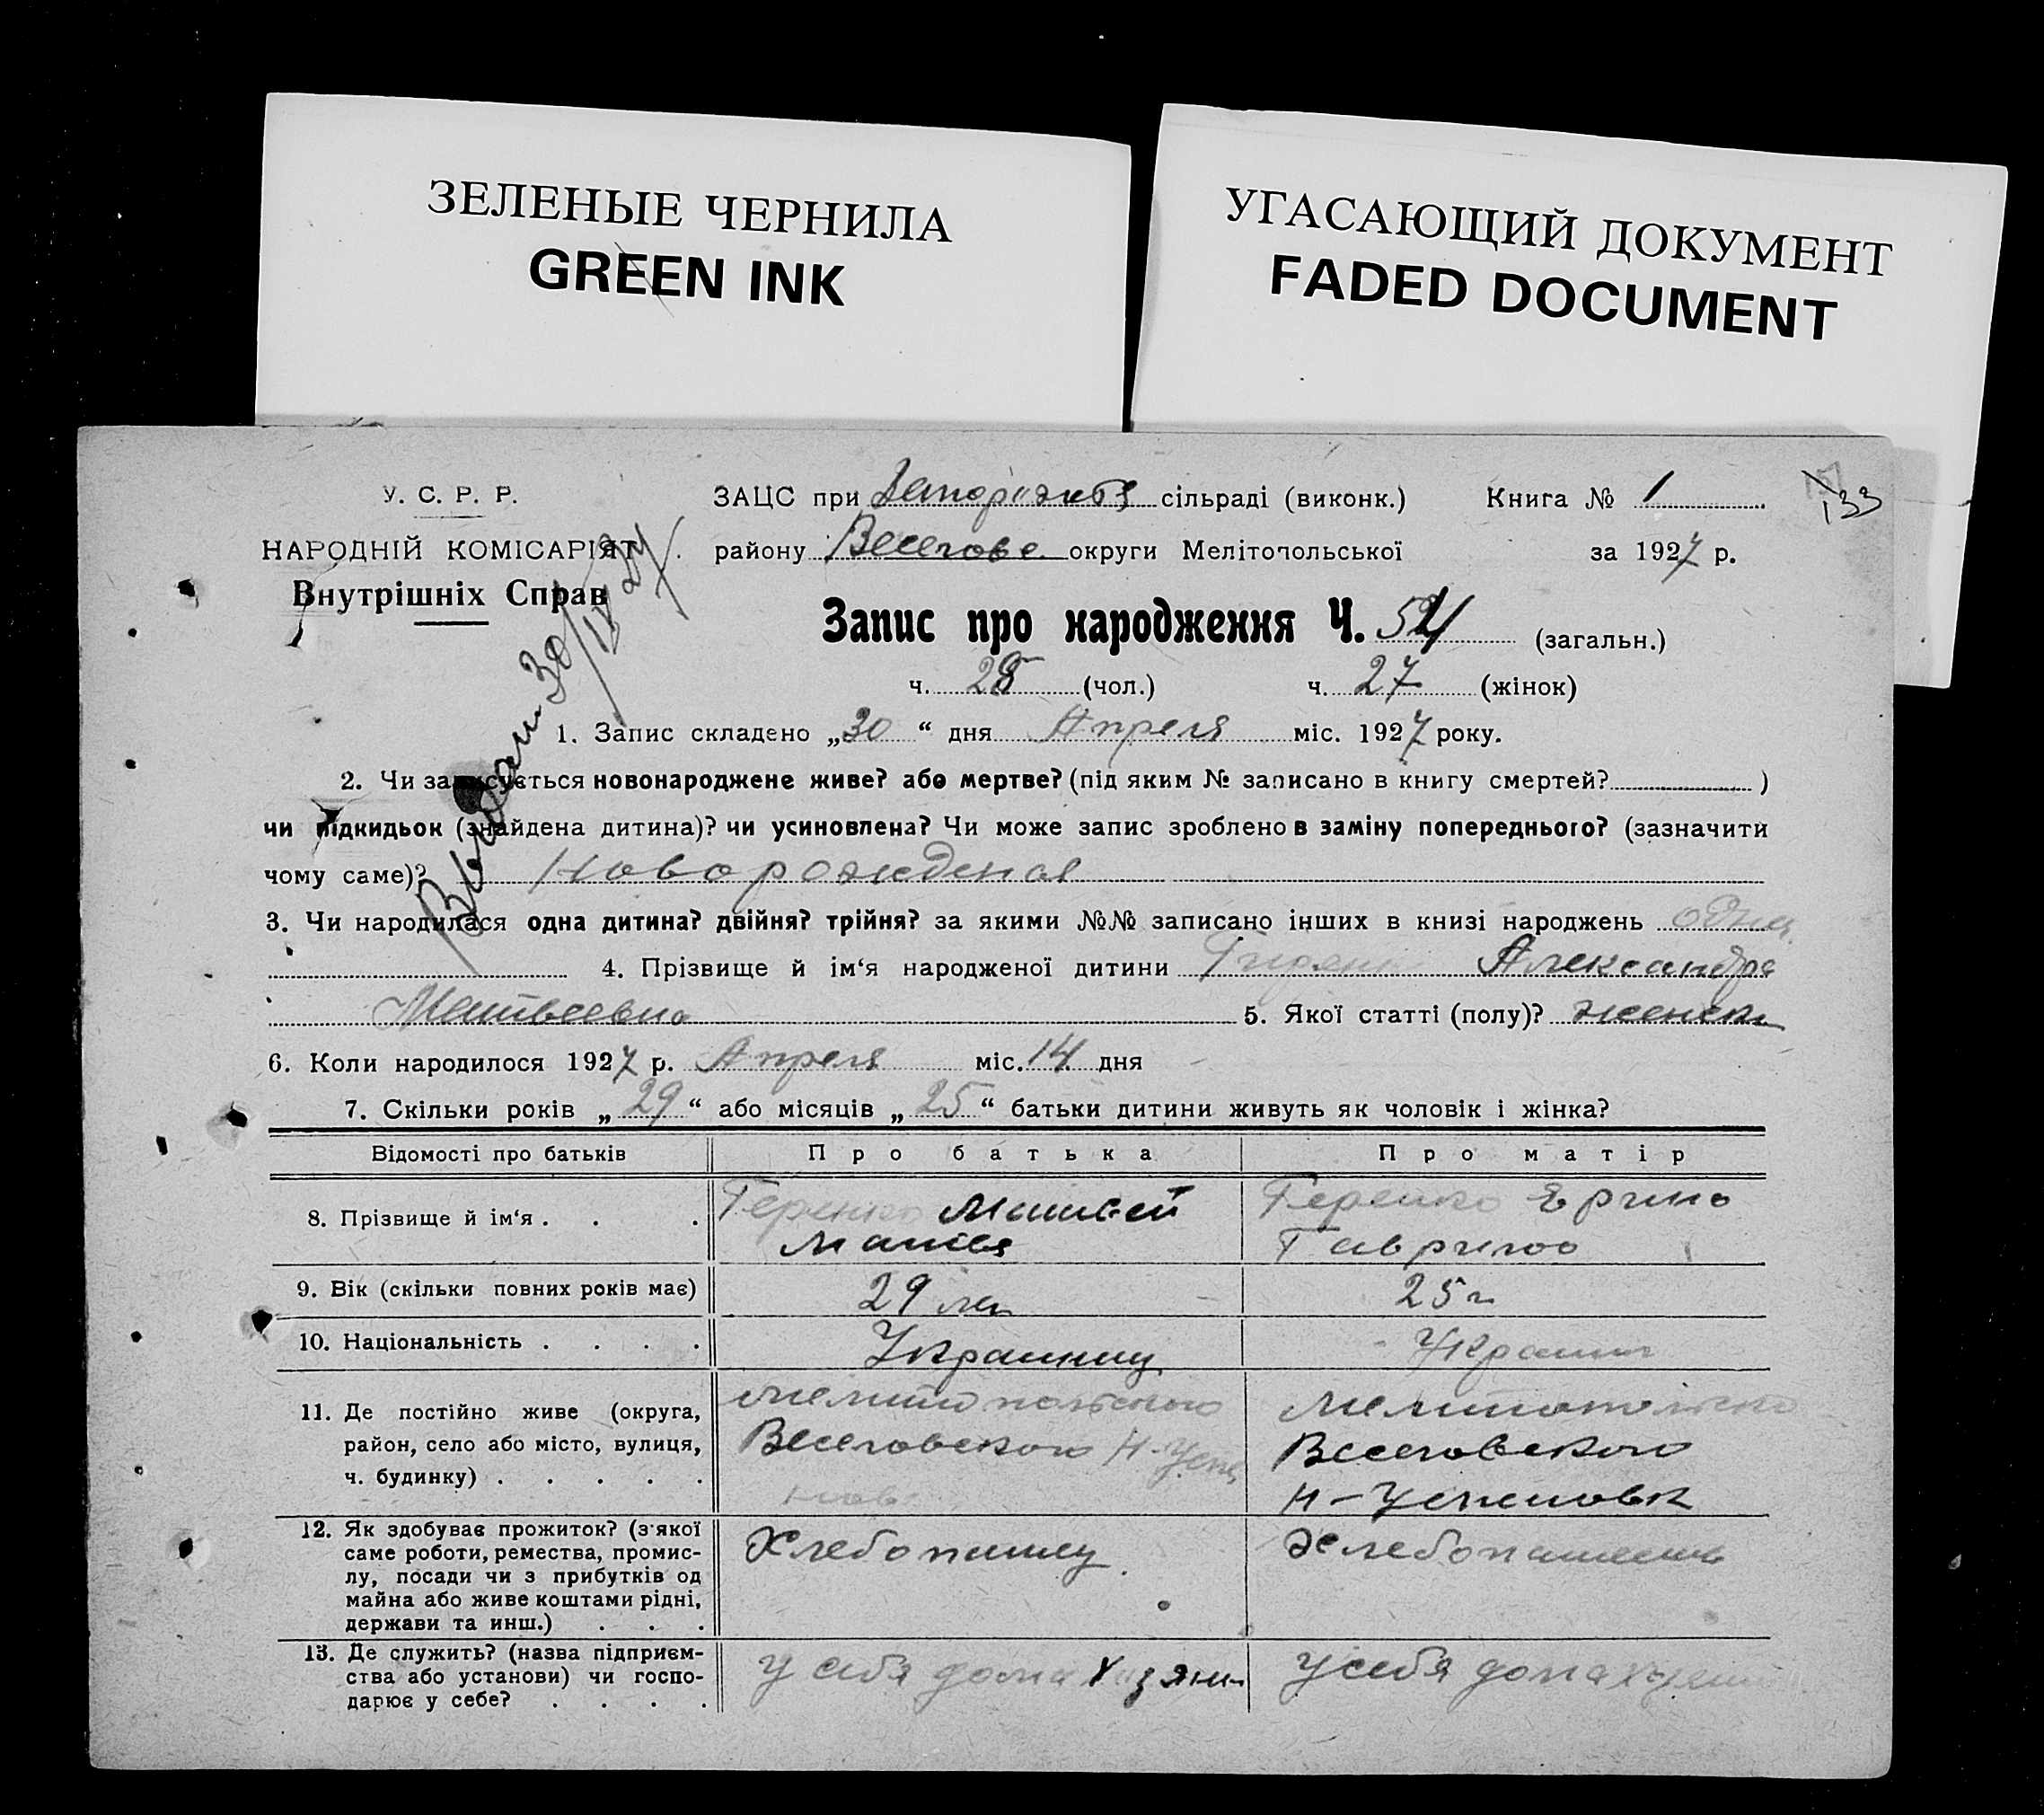 ЗЕЛЕНЫЕ ЧЕРНИЛА
GREEN INK
УГАСАЮЩИЙ ДОКУМЕНТ
FADED DOCUMENT
У. С. Р. Р.
НАРОДНІЙ КОМІСАРІЯТ
Внутрішніх Справ
ЗАЦС при сільраді (виконк.) Книга № 1
133
району Веселове округи Мелітопольської за 1927 р.
Запис про народження Ч. 54 (загальн.)
ч. 28 (чол.) ч. 27 (жінок)
1. Запис складено „30“ дня Апреля міс. 1927 року.
2. Чи записується новонароджене живе? або мертве? (під яким № записано в книгу смертей? )
чи підкидьок (знайдена дитина)? чи усиновлена? Чи може запис зроблено в заміну попереднього? (зазначити
чому саме)? Новорожденая
3. Чи народилася одна дитина? двійня? трійня? за якими №№ записано інших в книзі народжень одна
4. Прізвище й ім‘я народженої дитини Александра
Матвеевна 5. Якої статті (полу)? женск
6. Коли народилося 1927 р. Апреля міс. 14 дня
7. Скільки років „29“ або місяців „25“ батьки дитини живуть як чоловік і жінка?
Відомості про батьків Про батька Про матір
8. Прізвище й ім‘я . . . Геренко Матвей Геренко
9. Вік (скільки повних років має) 29 лет 25 л
10. Національність . . . . Украинец Украин
11. Де постійно живе (округа, Мелитопольского
район, село або місто, вулиця, Веселовского Н-Успе Веселовского
ч. будинку) . . . . . нов Н-Успеновк
12. Як здобуває прожиток? (з‘якої Хлебопашец
саме роботи, ремества, промис-
лу, посади чи з прибутків од
майна або живе коштами рідні,
держави та инш.) . . .
13. Де служить? (назва підприєм- у себя дома у себя дома
ства або установи) чи госпо-
дарює у себе? . . . .
Выдан 30/IV 27